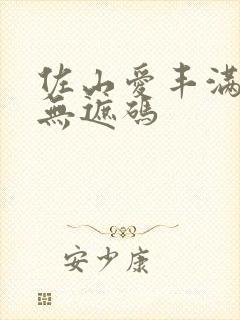 佐山愛丰满
無遮碼
安少康